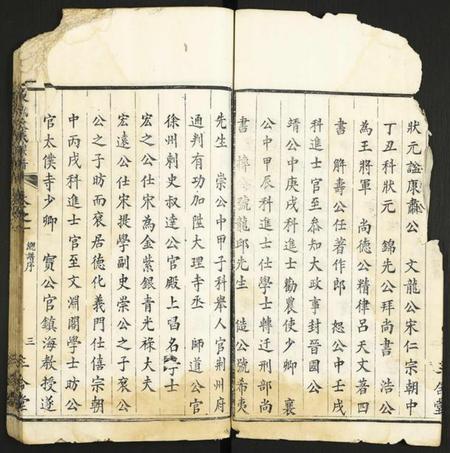 狀元諡康肅公　文龍公宋仁宗朝中
丁丑科狀元　錦先公拜尚書　浩公
為王將軍　尚德公精律呂天文著四
書　解壽公任著作郎　恕公中壬戌
科進士官至參知大政事封晉國公
靖公中庚戌科進士勸農使少卿　襄
公中甲辰科進士仕學士轉遷刑部尚
書　公號龍邱先生　造公號希夷
先生　崇公中甲子科舉人官荆州府
通判有功加陞大理寺丞　師道公官
徐州刺史叔達公官殿上唱名丁士
宏之公仕宋為金紫銀青光祿大夫
宏遠公仕宋提學副史崇公之子袞公
公之子昉而袞居德化義門仕僖宗朝
中丙戌科進士官至文淵閣學士昉公
官太僕寺少卿　寶公官鎮海教授遂
總譜序
三
三舍堂
三舍堂